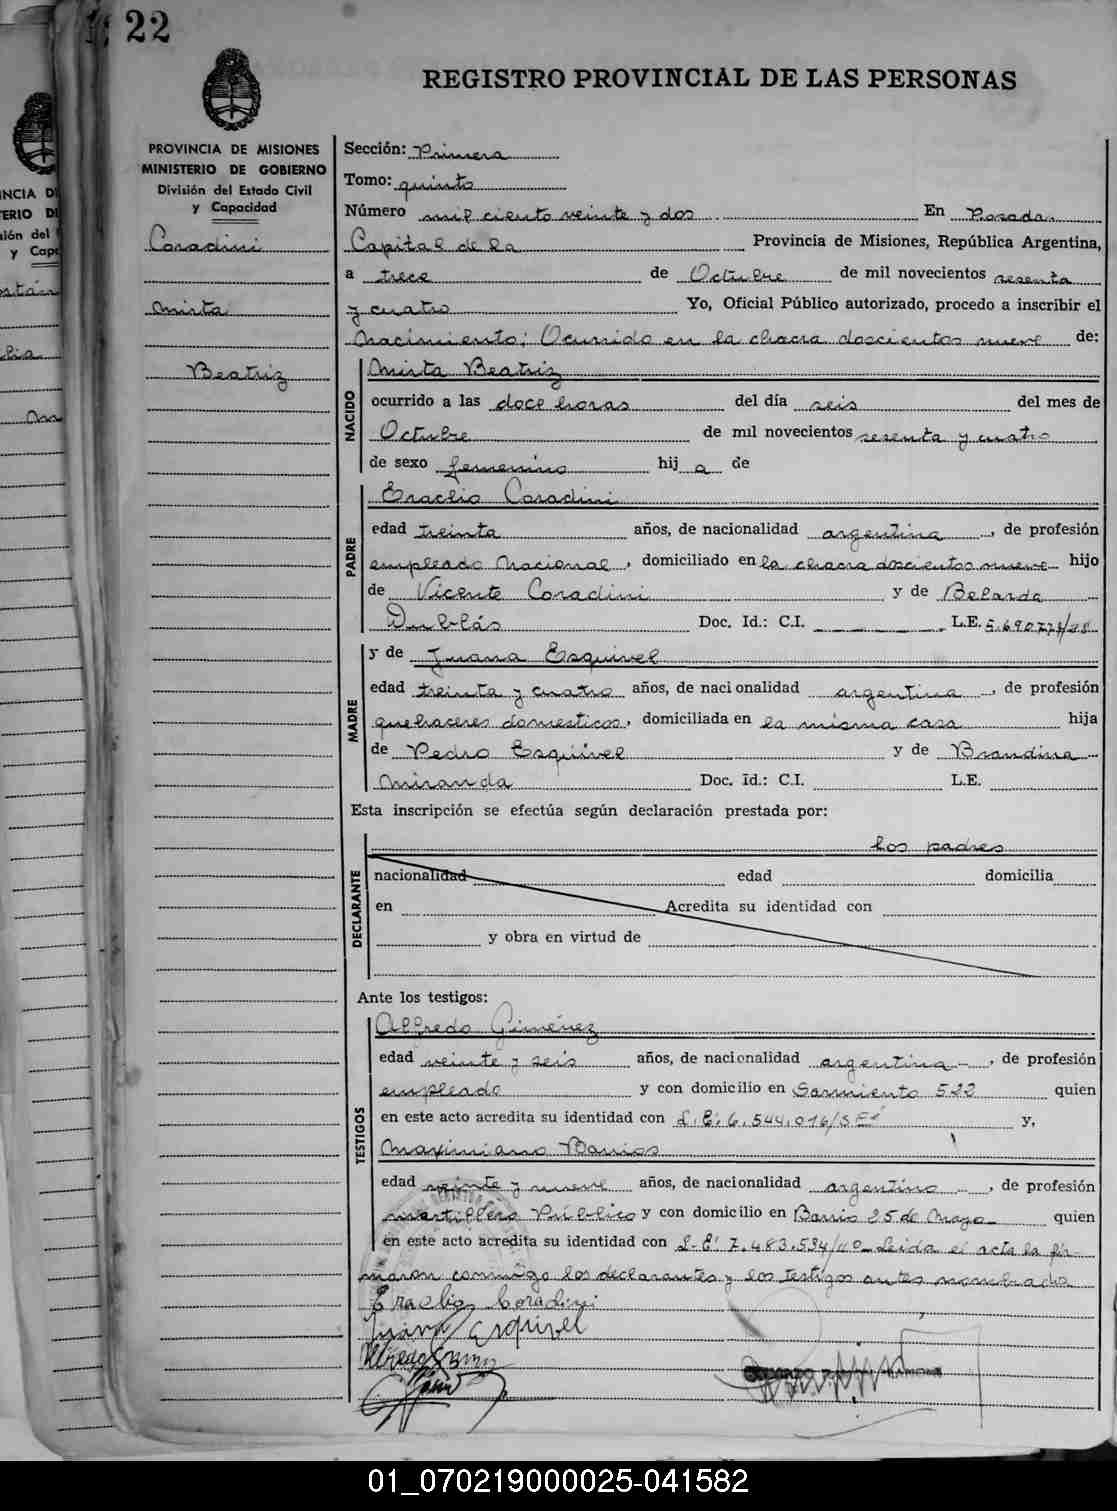 22
REGISTRO PROVINCIAL DE LAS PERSONAS
PROVINCIA DE MISIONES
MINISTERIO DE GOBIERNO
División del Estado Civil
y Capacidad
Coradini
Mirta
Beatriz
Sección: Primera
Tomo: quinto
Número mil ciento veinte y dos En Posadas
Capital de la Provincia de Misiones, República Argentina,
a trece de Octubre de mil novecientos sesenta
y cuatro Yo, Oficial Público autorizado, procedo a inscribir el
Nacimiento; Ocurrido en la chacra doscientos nueve de:
NACIDO
Mirta Beatriz
ocurrido a las doce horas del día seis del mes de
Octubre de mil novecientos sesenta y cuatro
de sexo femenino hij a de
PADRE
Eraclio Coradini
edad treinta años, de nacionalidad argentina, de profesión
empleado Nacional, domiciliado en la chacra doscientos nueve hijo
de Vicente Coradini y de Belarda
Dublás Doc. Id.: C.I. L.E.
MADRE
y de Juana Esquivel
edad treinta y cuatro años, de nacionalidad argentina, de profesión
quehaceres domesticos, domiciliada en la misma casa hija
de Pedro Esquivel y de Brandina
Miranda Doc. Id.: C.I. L.E.
Esta inscripción se efectúa según declaración prestada por:
DECLARANTE
los padres
nacionalidad edad domicilia
en Acredita su identidad con
y obra en virtud de
Ante los testigos:
TESTIGOS
Alfredo Giménez
edad veinte y seis años, de nacionalidad argentina, de profesión
empleado y con domicilio en Sarmiento 522 quien
en este acto acredita su identidad con L.E: 6.544.016 y,
Maximiano Barrios
edad veinte y nueve años, de nacionalidad argentino, de profesión
martillero Público y con domicilio en Barrio 25 de Mayo quien
en este acto acredita su identidad con L.E: 7.483.534 Leida el acta la fir-
maron conmigo los declarantes y los testigos antes nombrado
Eraclio Coradini
Juana Esquivel
01_070219000025-041582